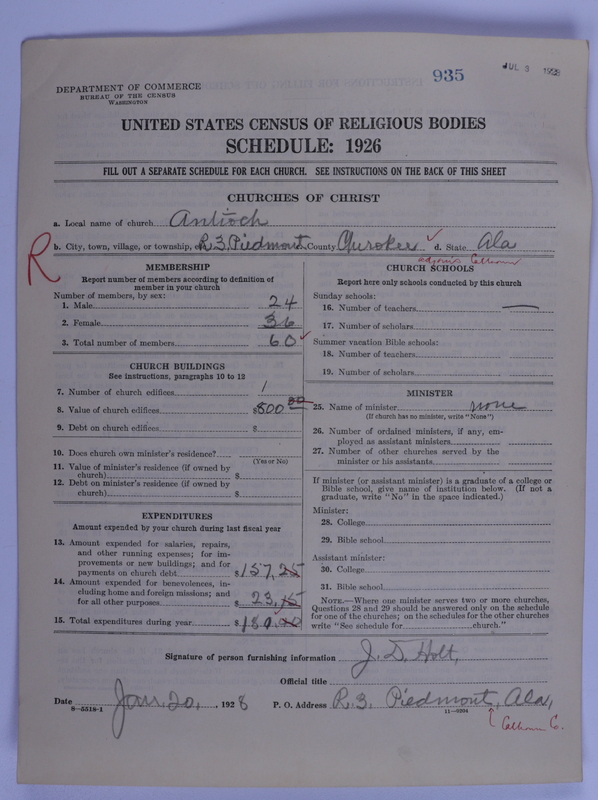 935
JUL 3 1928
DEPARTMENT OF COMMERCE
BUREAU OF THE CENSUS
WASHINGTON
UNITED STATES CENSUS OF RELIGIOUS BODIES
SCHEDULE: 1926
FILL OUT A SEPARATE SCHEDULE FOR EACH CHURCH. SEE INSTRUCTIONS ON THE BACK OF THIS SHEET
CHURCHES OF CHRIST
a. Local name of church Antioch
b. City, town, village, or township, or R 3, Piedmont County Cherokee d. State Ala
R
adjoins Calhoun
MEMBERSHIP
Report number of members according to definition of
member in your church
Number of members, by sex:
1. Male 24
2. Female 36
3. Total number of members 60
CHURCH BUILDINGS
See instructions, paragraphs 10 to 12
7. Number of church edifices 1
8. Value of church edifices $500 00
9. Debt on church edifices $
10. Does church own minister's residence?
(Yes or No)
11. Value of minister's residence (if owned by
church) $
12. Debt on minister's residence (if owned by
church) $
EXPENDITURES
Amount expended by your church during last fiscal year
13. Amount expended for salaries, repairs,
and other running expenses; for im-
provements or new buildings; and for
payments on church debt $157,25
14. Amount expended for benevolences, in-
cluding home and foreign missions; and
for all other purposes $ 23,
15. Total expenditures during year $180.00
CHURCH SCHOOLS
Report here only schools conducted by this church
Sunday schools:
16. Number of teachers —
17. Number of scholars
Summer vacation Bible schools:
18. Number of teachers
19. Number of scholars
MINISTER
25. Name of minister none
(If church has no minister, write "None")
26. Number of ordained ministers, if any, em-
ployed as assistant ministers
27. Number of other churches served by the
minister or his assistants
If minister (or assistant minister) is a graduate of a college or
Bible school, give name of institution below. (If not a
graduate, write "No" in the space indicated.)
Minister:
28. College
29. Bible school
Assistant minister:
30. College
31. Bible school
NOTE.—Where one minister serves two or more churches,
Questions 28 and 29 should be answered only on the schedule
for one of the churches; on the schedules for the other churches
write "See schedule for church."
Signature of person furnishing information J. D. Holt,
Official title
Date Jan, 20, , 1928 P. O. Address R. 3. Piedmont, Ala,
8—5518-1
11—6204
Calhoun Co.